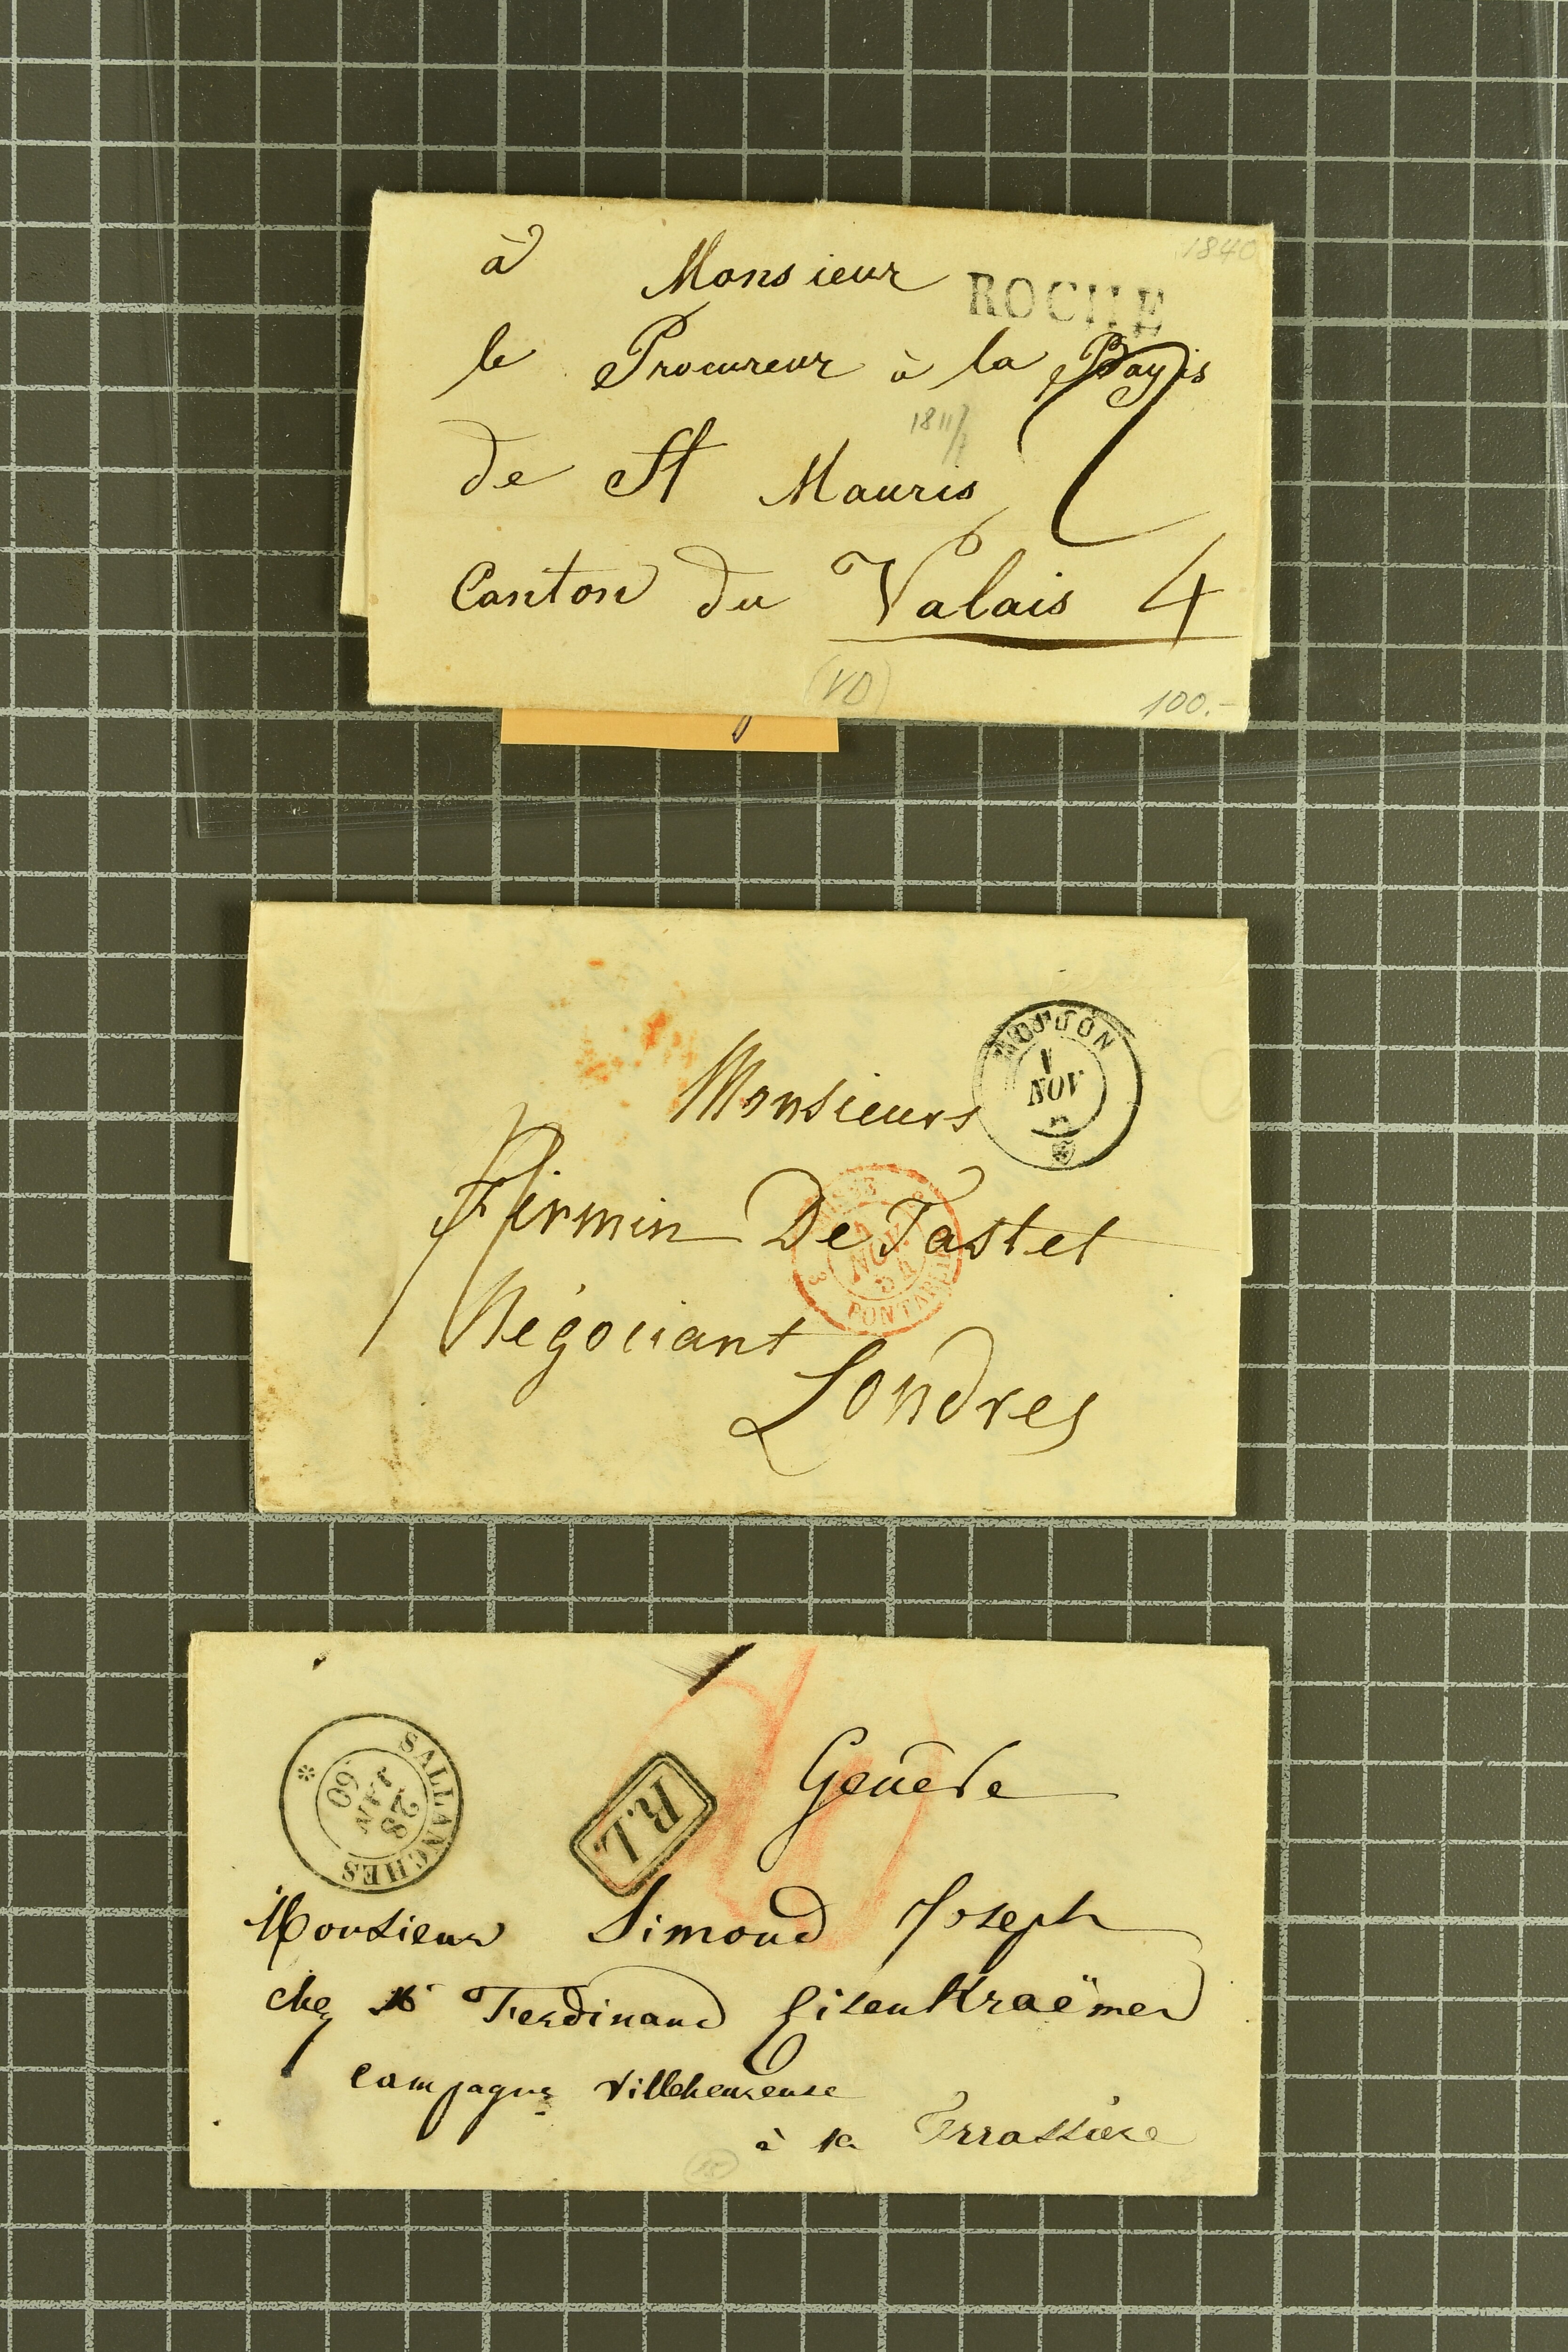 à Monsieur
ROCHE
1840
le Procureur à la Bayis
1811/7
de St Mauris
Canton du Valais 4
(VD)
100.-
MOUDON
1
NOV
Monsieurs
Firmin De Tastet
SUISSE
NOV.
54
PONTARLIER
Négociant
Londres
SALLANCHES
28
JAN
60
R.L.
Genêve
Monsieur Simond Joseph
chez Mr Ferdinand EisenKraëmer
campagne Villeheureuse
à la Terrassière